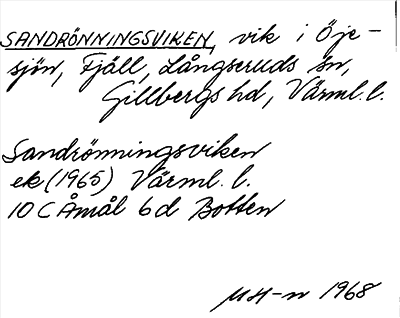 SANDRÖNNINGSVIKEN, vik i Öje-
sjön, Fjäll, Långseruds sn,
Gillbergs hd, Värml. l.
Sandrönningsviken
ek (1965) Värml. l.
10 C Åmål 6 d Botten
MH-n 1968